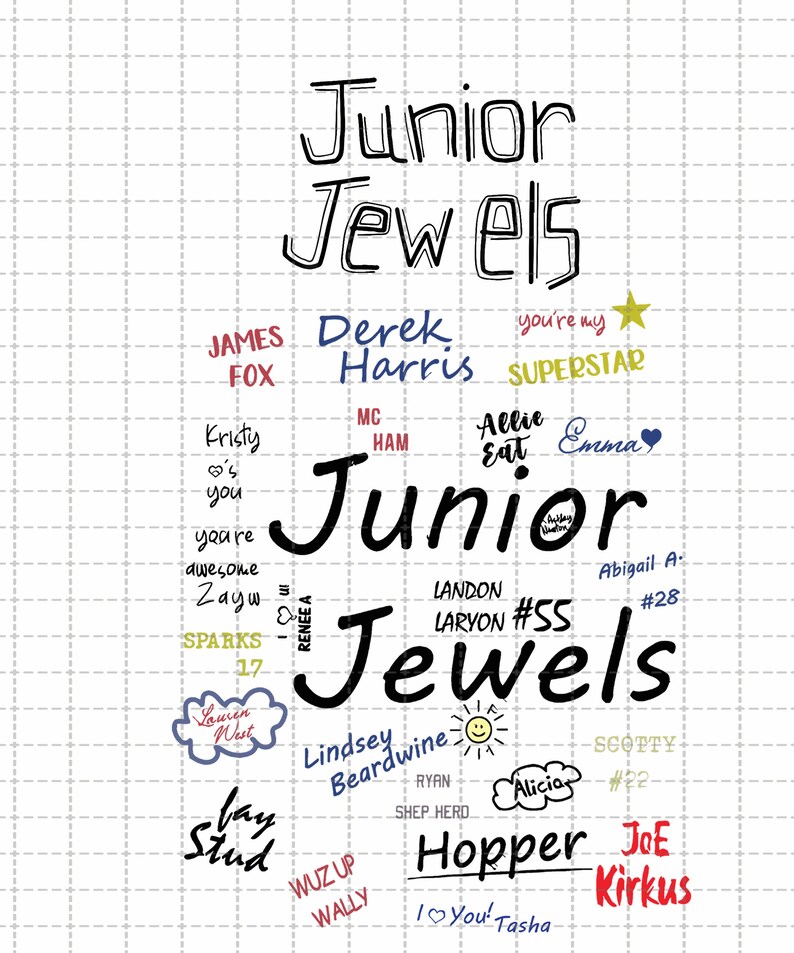 Junior
Jewels
JAMES
FOX
Derek
Harris
you're my
SUPERSTAR
Kristy
's
you
MC
HAM
Allie
Eat
Emma
Junior
you are
awesome
Zayw
I
u!
RENEE A
Abigail A.
#28
LANDON
LARYON #55
Jewels
SPARKS
17
Lauren
West
Lindsey
Beardwine
SCOTTY
#22
RYAN
SHEP HERD
Alicia
Lay
Stud
Hopper
JOE
Kirkus
WUZ UP
WALLY
I ♡ You!
Tasha